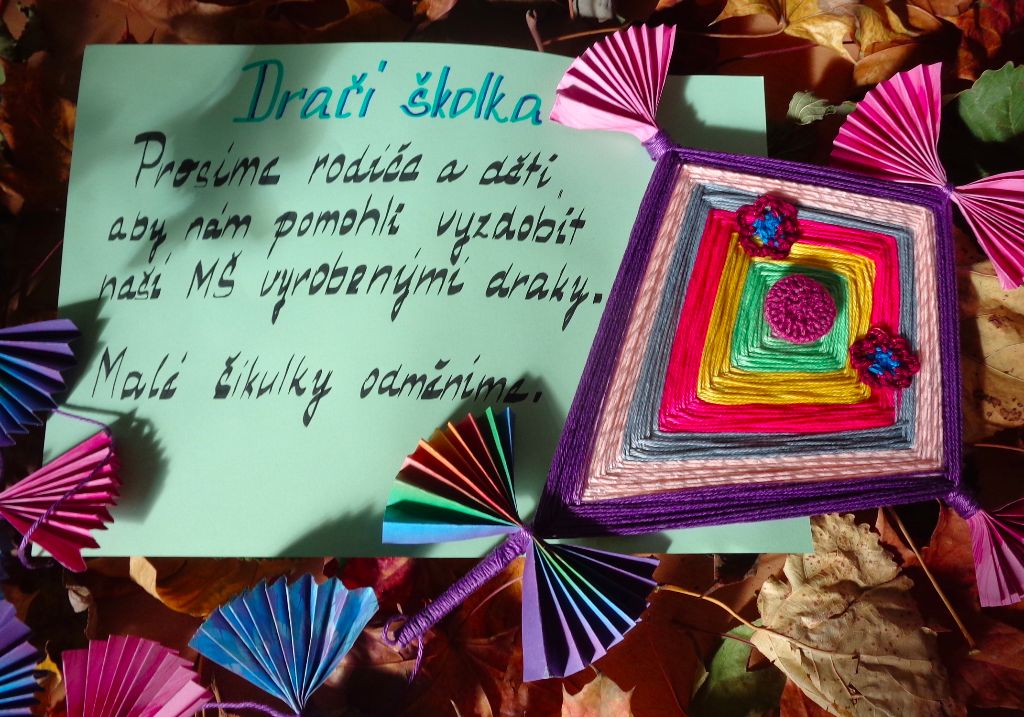 Dračí školka
Prosíme rodiče a děti,
aby nám pomohli vyzdobit
naši MŠ vyrobenými draky.
Malé šikulky odměníme.